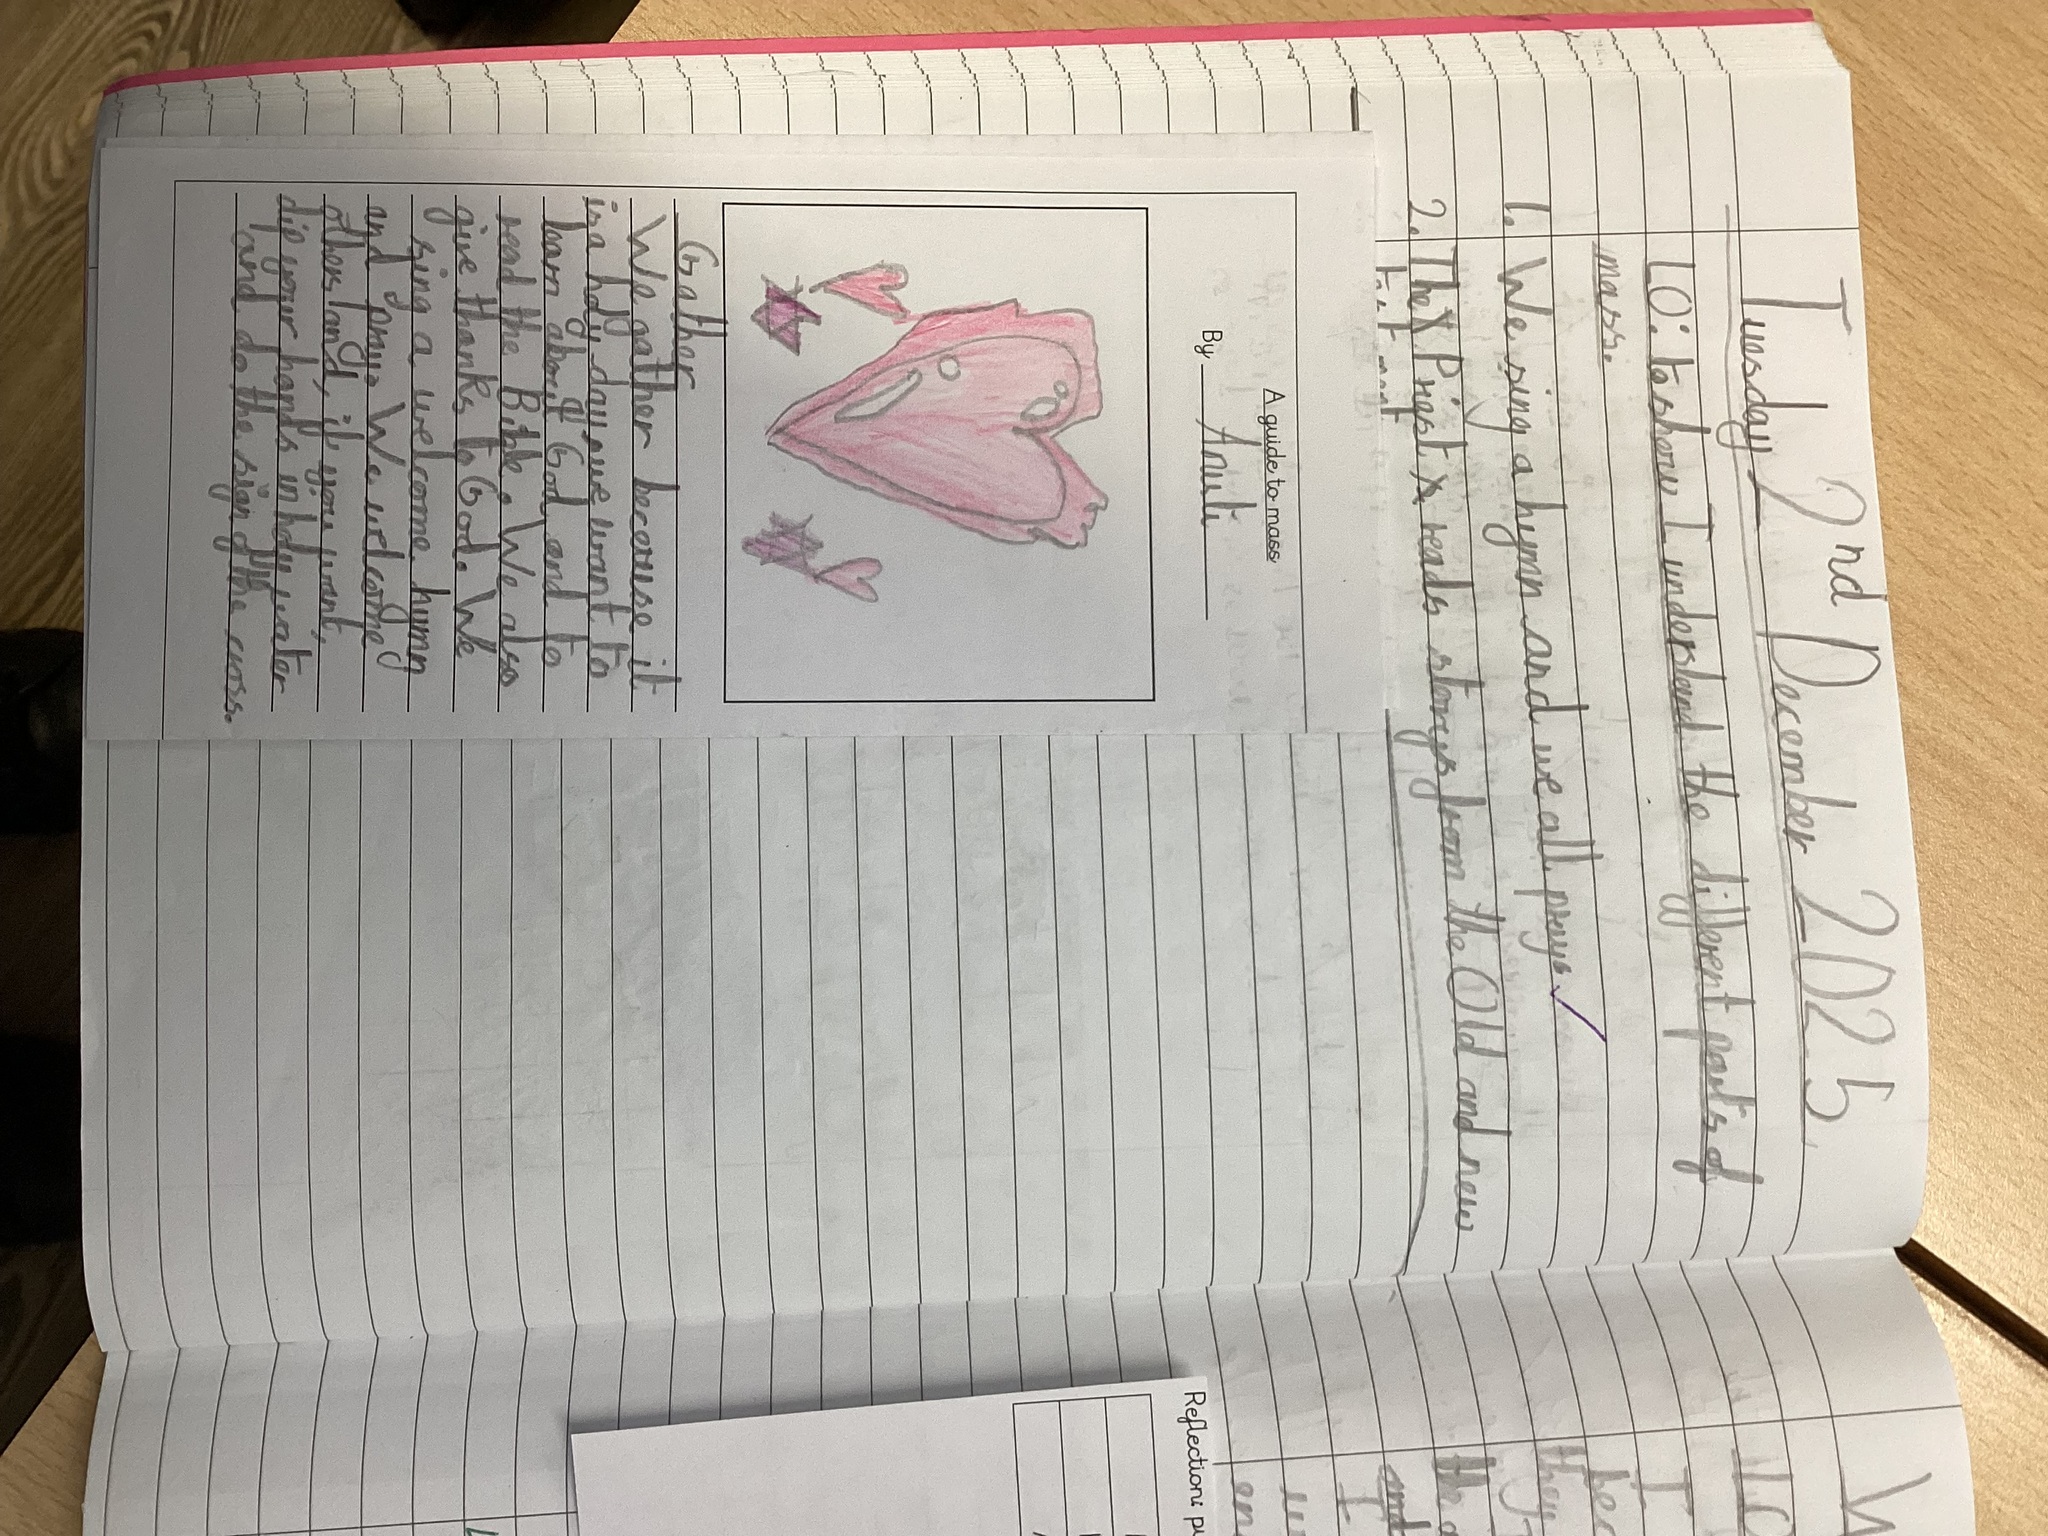 Tuesday 2nd December 2025
LO: to show I understand the different parts of
mass.
1. We sing a hymn and we all prays
2. The Priest reads storys from the Old and new
A guide to mass
By Anuti
Gather
We gather because it
is a holy day, we want to
learn about God and to
read the Bible. We also
give thanks to God. We
sing a welcome hymn
and pray. We welcome
others and, if you want,
dip your hands in holy water
and do the sign of the cross.
Reflection: